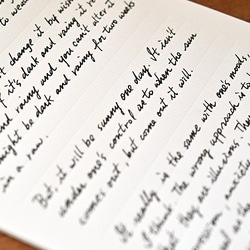 to wea
't change it by wish
If it's dark and rainy it r
and rainy and you can't alter it
might be dark and rainy for two weeks
in a row.
But it will be sunny one day. It isn't
under one's control as to when the sun
comes out, but come out it will.
It really is the same with one's moods,
I think. The wrong approach is to
that they are illusions. They
depression, anxiet